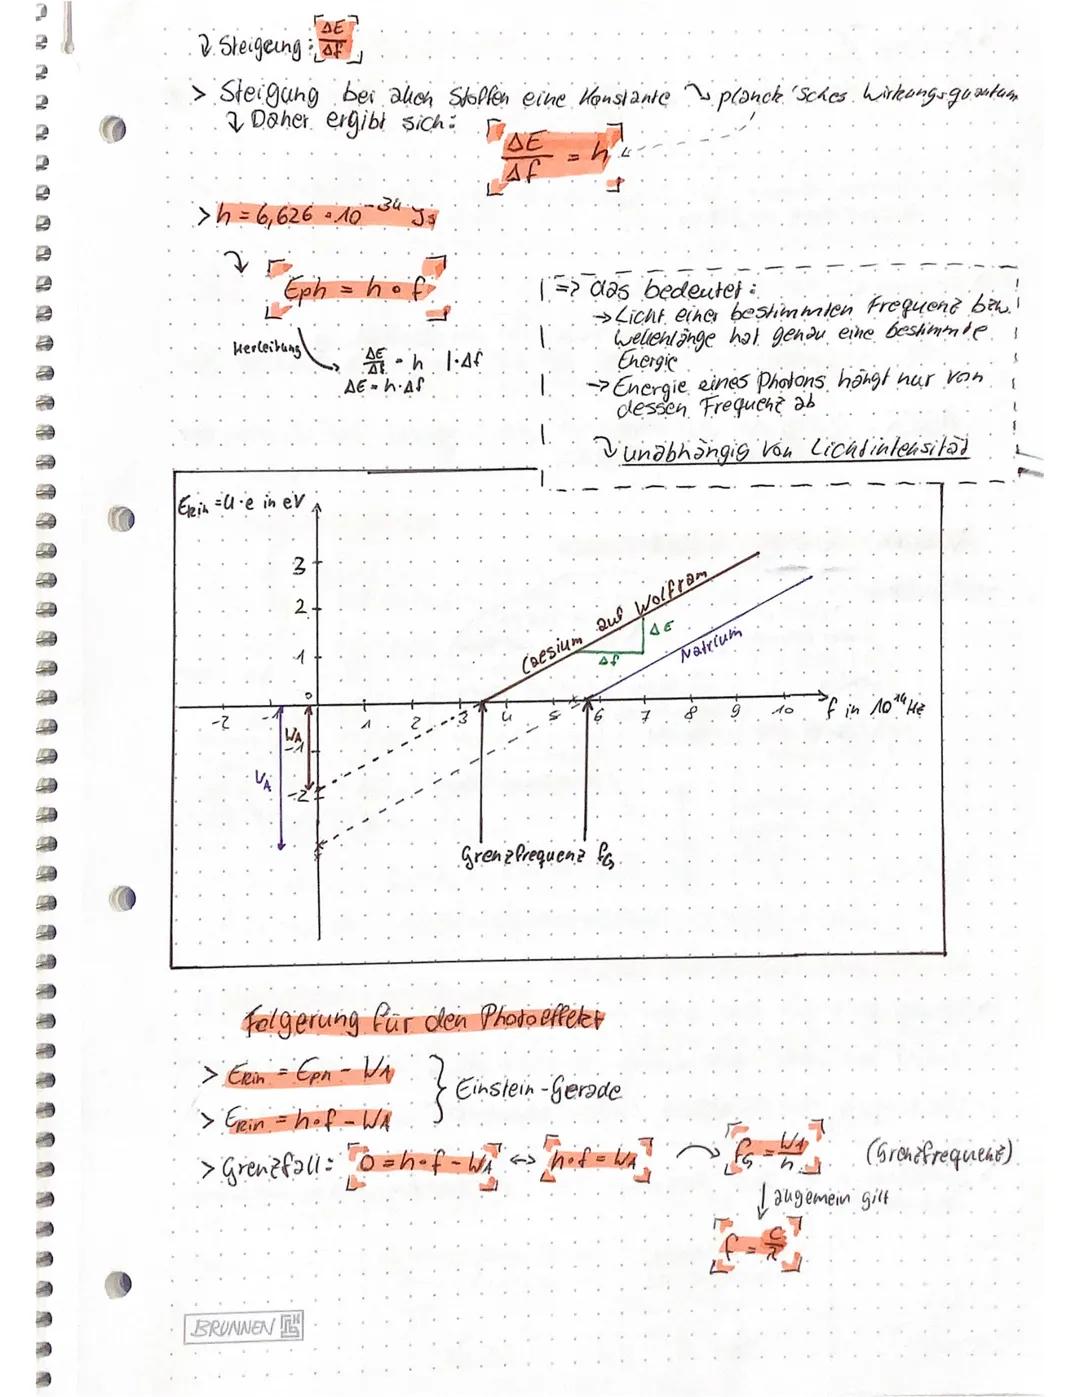 ↓ Steigung: ΔE/Δf
> Steigung bei allen Stoffen eine Konstante ↘ planck'sches Wirkungsquantum
↓ Daher ergibt sich:
ΔE/Δf = h
> h = 6,626 • 10^-34 Js
Eph = h • f
Herleitung
ΔE/Δf = h |·Δf
ΔE = h·Δf
=> das bedeutet:
→ Licht einer bestimmten Frequenz bzw.
Wellenlänge hat genau eine bestimmte
Energie
→ Energie eines Photons hängt nur von
dessen Frequenz ab
↓ unabhängig von Lichtintensität
Ekin = U·e in eV
3
2
1
0
-2 -1 1 2 3 4 5 6 7 8 9 10 f in 10^14 Hz
-1
-2
WA
WA
Caesium auf Wolfram
ΔE
Δf
Natrium
Grenzfrequenz fG
Folgerung für den Photoeffekt
> Ekin = Eph - WA
} Einstein-Gerade
> Ekin = h•f - WA
> Grenzfall: 0 = h•f - WA ↔ h•f = WA → fG = WA/h (Grenzfrequenz)
↓ allgemein gilt
f = c/λ
BRUNNEN